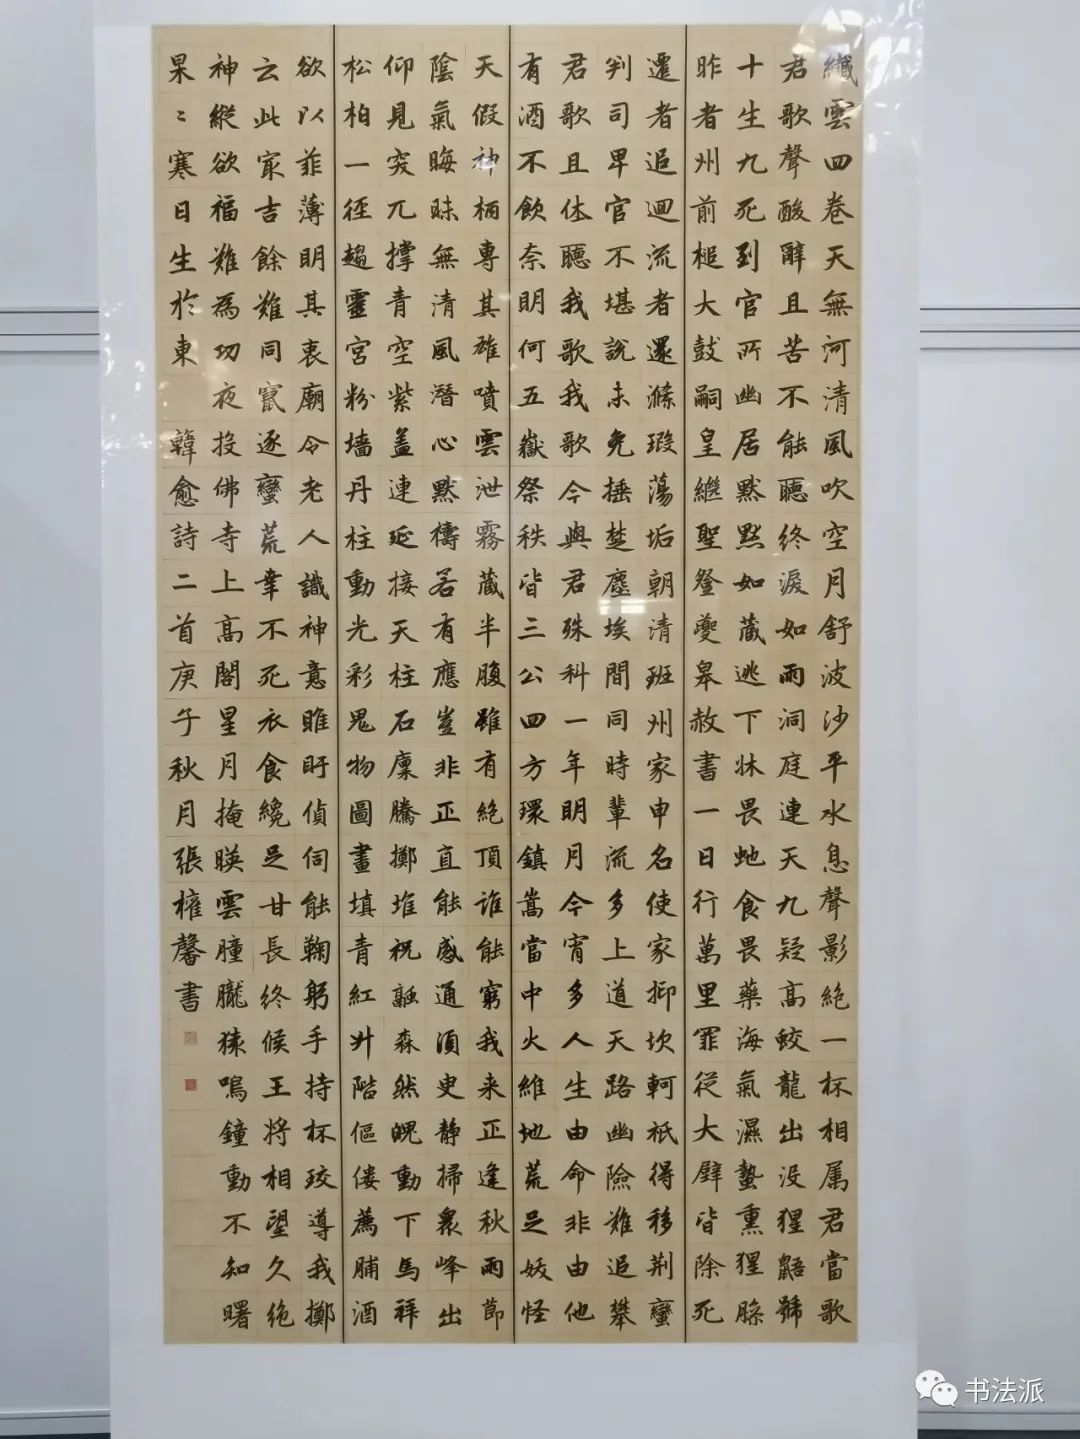 纖雲四卷天無河清風吹空月舒波沙平水息聲影絶一杯相属君當歌
君歌聲酸辭且苦不能聽終淚如雨洞庭連天九疑高蛟龍出没猩鼯號
十生九死到官所幽居默默如蔵逃下牀畏虵食畏藥海氣濕蟄熏猩臊
昨者州前槌大鼓嗣皇繼聖登夔皋赦書一日行萬里罪従大辟皆除死
遷者追迴流者還滌瑕蕩垢朝清班州家申名使家抑坎軻祇得移荆蠻
判司卑官不堪說未免捶楚塵埃間同時輩流多上道天路幽險難追攀
君歌且休聽我歌我歌今與君殊科一年明月今宵多人生由命非由他
有酒不飲奈明何五嶽祭秩皆三公四方環鎮嵩當中火維地荒足妖怪
天假神柄專其雄噴雲泄霧蔵半腹雖有絶頂誰能窮我来正逢秋雨節
陰氣晦昧無清風潛心默禱若有應豈非正直能感通須臾静掃衆峰出
仰見突兀撑青空紫蓋連延接天柱石廪騰擲堆祝融森然魄動下馬拜
松柏一径趨靈宮粉墙丹柱動光彩鬼物圖畫填青紅升階傴僂薦脯酒
欲以菲薄明其衷廟令老人識神意睢盱偵伺能鞠躬手持杯珓導我擲
云此冣吉餘難同竄逐蠻荒幸不死衣食纔足甘長終候王將相望久絶
神縱欲福難為功夜投佛寺上高閣星月掩暎雲朣朧猿鳴鐘動不知曙
杲〻寒日生於東 韓愈詩二首庚子秋月張榷馨書
书法派